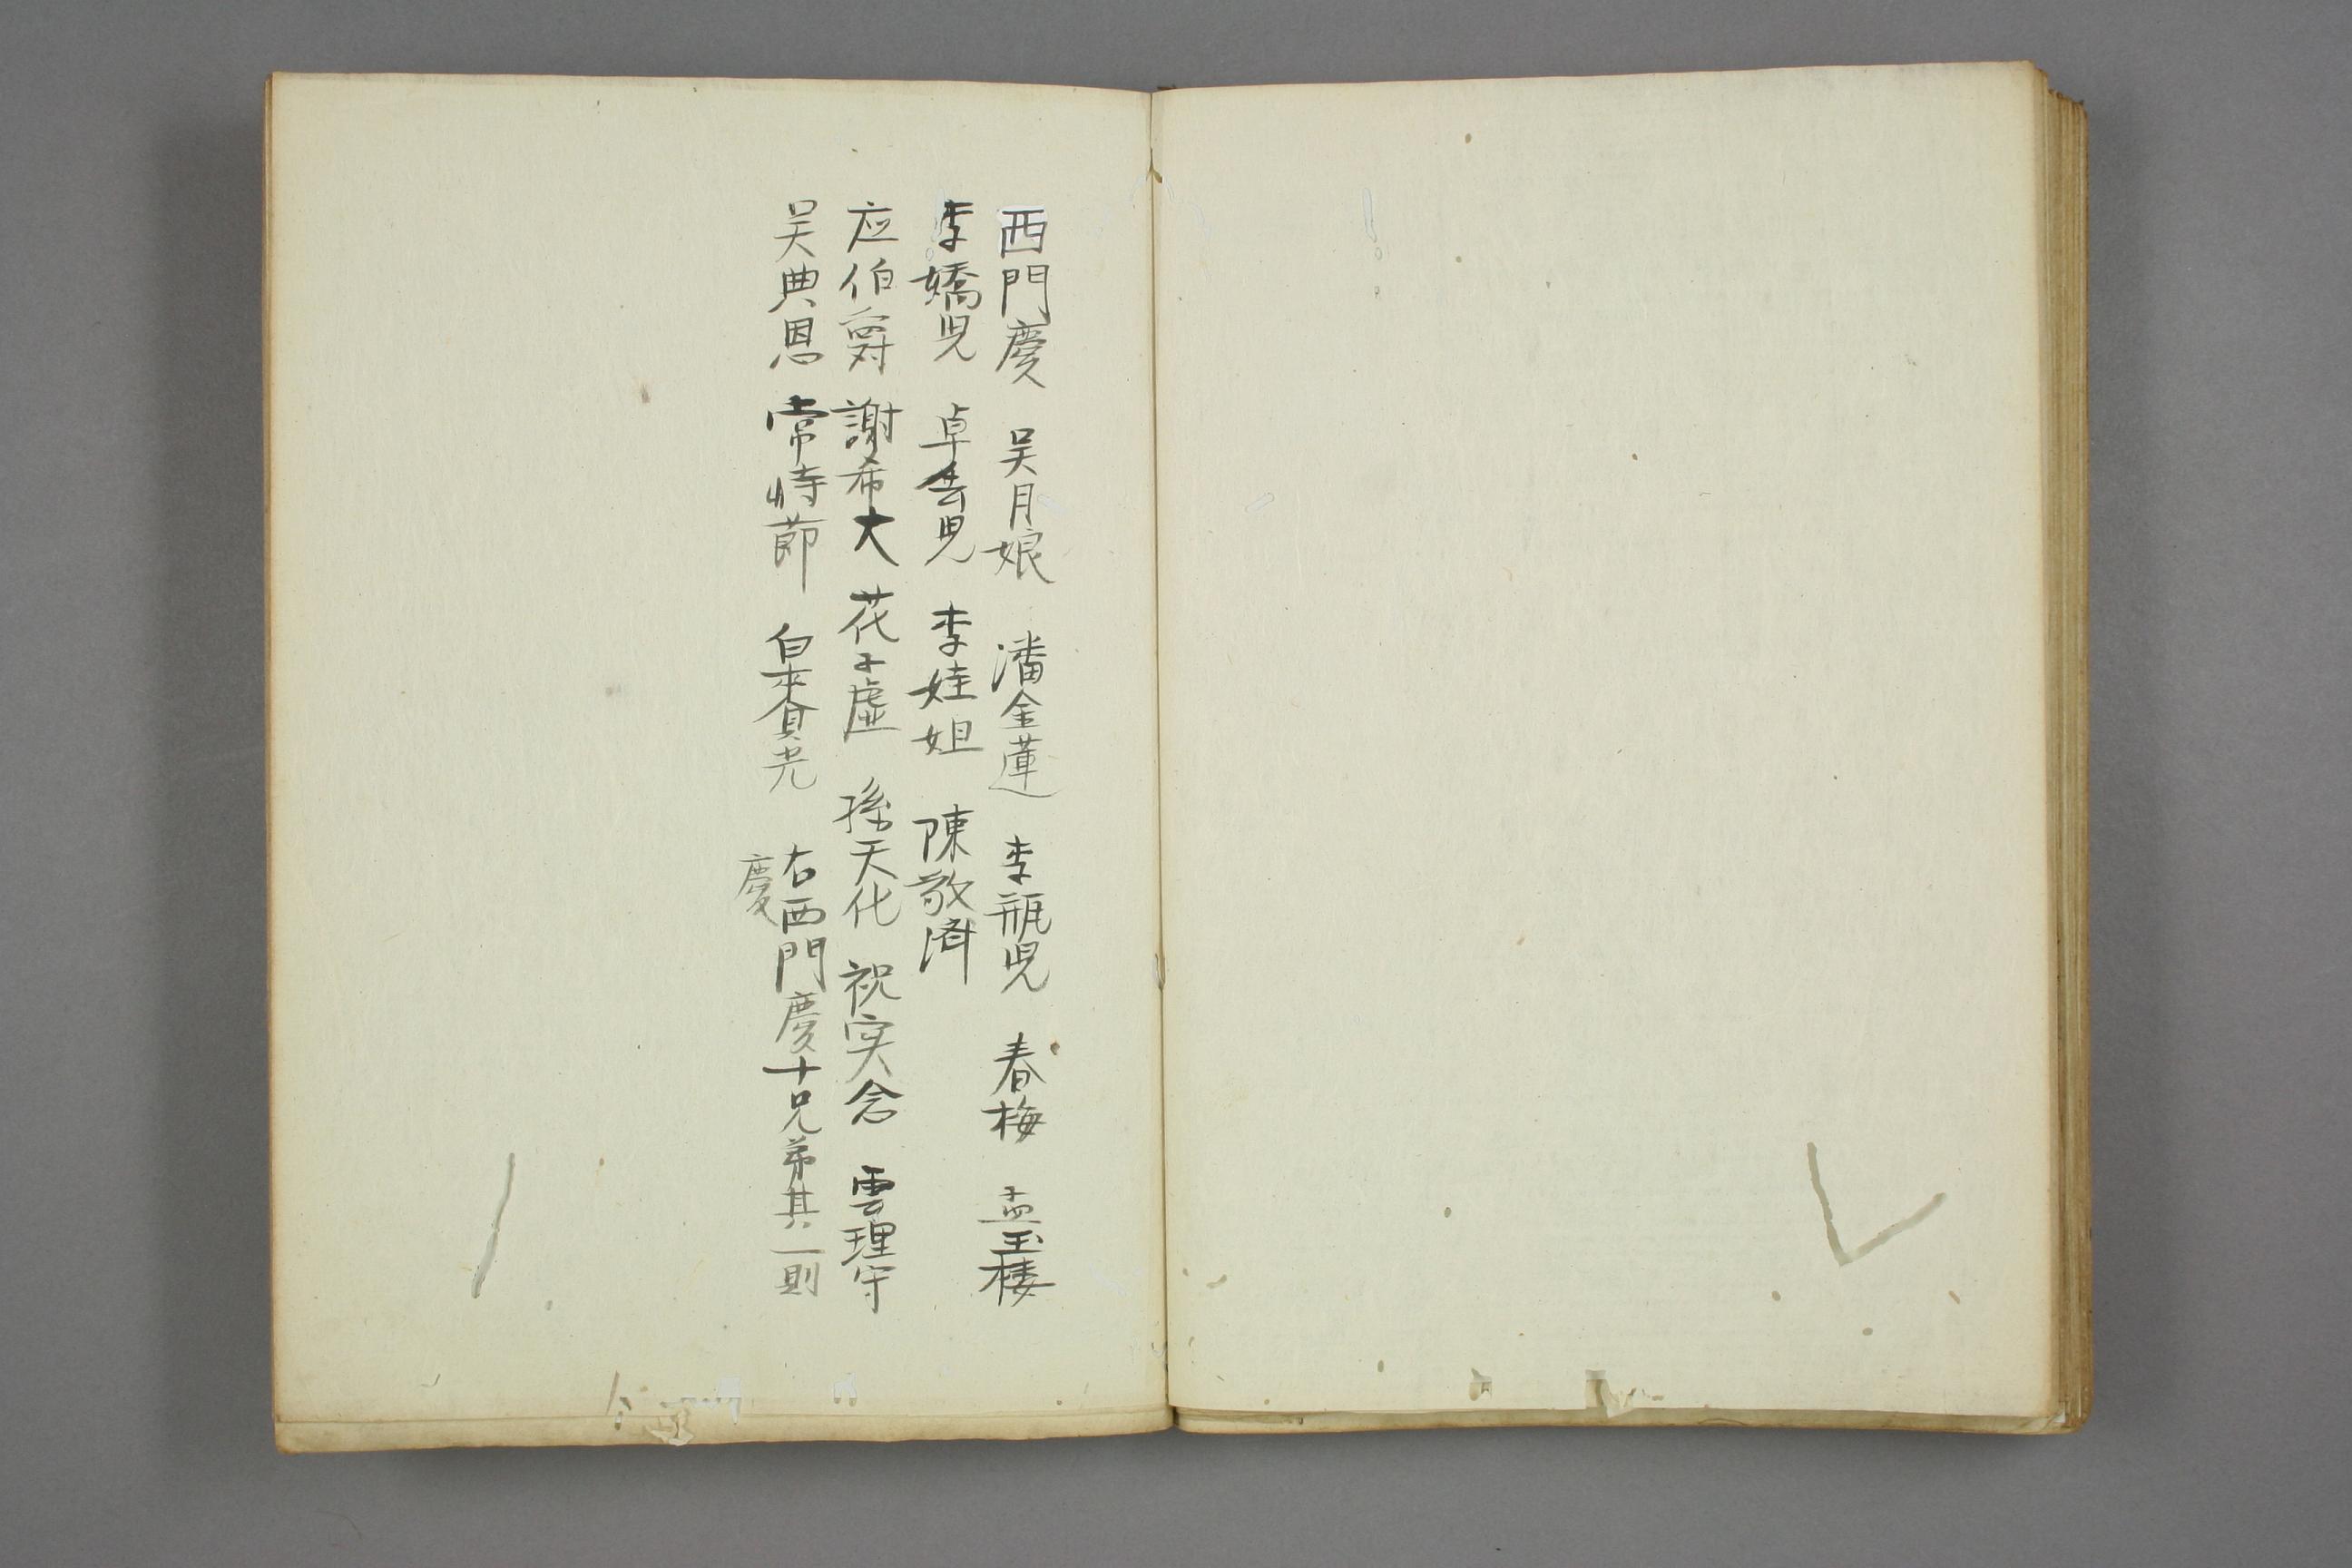 西門慶 吴月娘 潘金蓮 李瓶児 春梅 孟玉楼
李嬌児 卓丢児 李娃姐 陳敬济
应伯爵 謝希大 花子虚 孫天化 祝实念 雲理守
吴典恩 常時節 白来賁光 右西門慶十兄弟其一則
慶